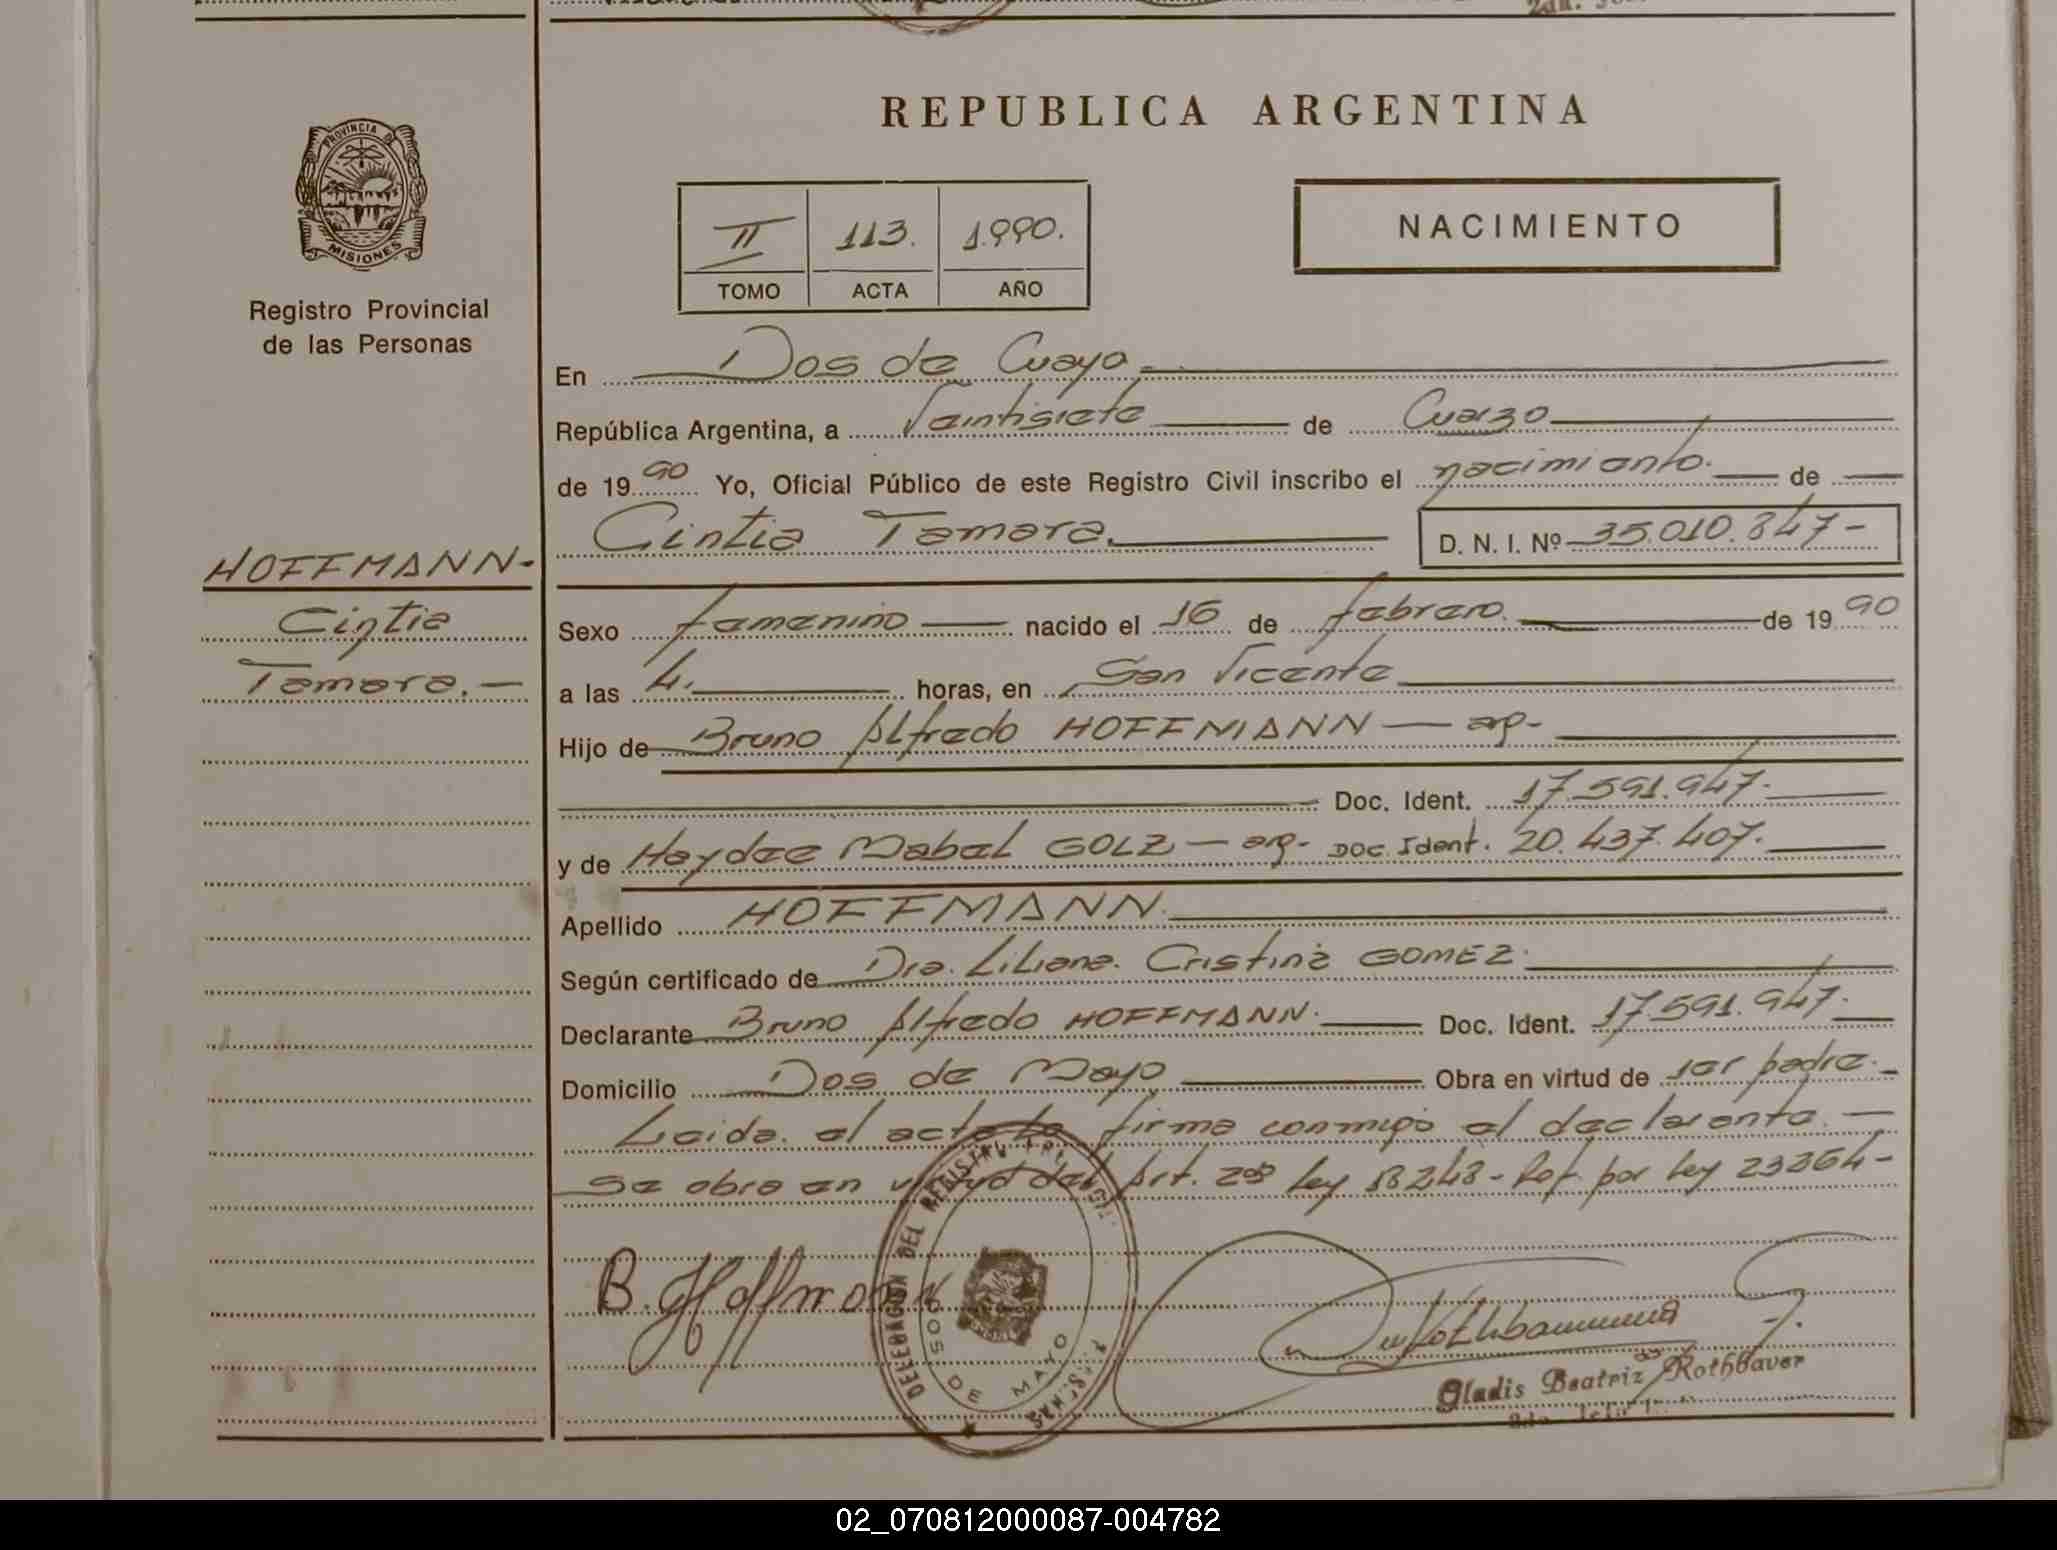 REPUBLICA ARGENTINA
PROVINCIA DE
MISIONES
Registro Provincial
de las Personas
II 113. 1.990.
TOMO ACTA AÑO
NACIMIENTO
En Dos de Mayo
República Argentina, a Veintisiete de Marzo
de 19 90 Yo, Oficial Público de este Registro Civil inscribo el nacimiento. de
Cintia Tamara. D. N. I. Nº 35.010.847-
HOFFMANN-
Cintia
Tamara.-
Sexo femenino nacido el 16 de febrero. de 19 90
a las 4. horas, en San Vicente
Hijo de Bruno Alfredo HOFFMANN — arg-
Doc. Ident. 17.591.947.
y de Haydee Mabel GOLZ — arg- Doc. Ident. 20.437.407.
Apellido HOFFMANN.
Según certificado de Dra. Liliana. Cristina GOMEZ.
Declarante Bruno Alfredo HOFFMANN. Doc. Ident. 17.591.947.
Domicilio Dos de Mayo Obra en virtud de ser padre.-
Leida. el acta la firma conmigo el declarante. —
Se obra en virtud del Art. 2do ley 18248- Ref. por ley 23264-
B. Hoffmann
DELEGACION DEL REGISTRO PROVINCIAL
DOS DE MAYO
MISIONES
Gladis Beatriz Rothbauer
02_070812000087-004782